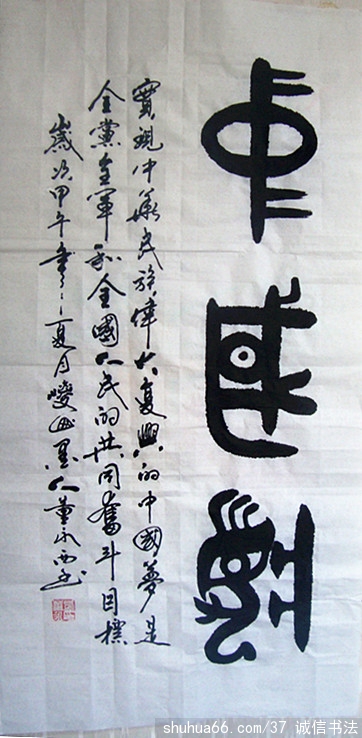 中國夢
實現中華民族偉大复興的中國夢是
全黨全軍和全國人民的共同奮斗目標
歲次甲午年之夏月山人董永西書
shuhua66.com/37 诚信书法